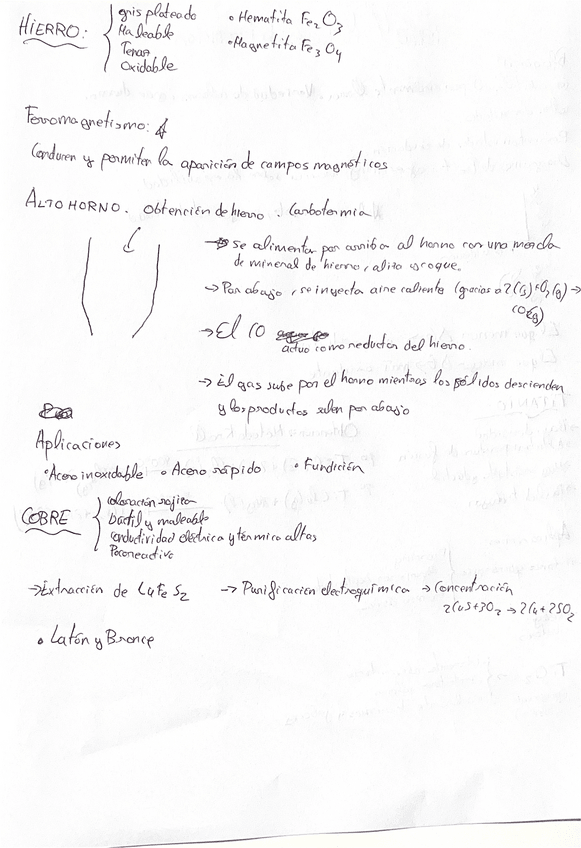 HIERRO:
gris plateado
Maleable
Tenaz
Oxidable
• Hematita Fe2O3
• Magnetita Fe3O4
Ferromagnetismo:
Conducen y permiten la aparición de campos magnéticos
ALTO HORNO. Obtención de hierro. Carbotermia
→ Se alimenta por arriba al horno con una mezcla
de mineral de hierro, y coque.
→ Por abajo, se inyecta aire caliente (gracias a 2C(s)+O2(g) →
CO(g)
→ El CO
actua como reductor del hierro.
→ El gas sube por el horno mientras los sólidos descienden
y los productos salen por abajo
Aplicaciones
• Acero inoxidable • Acero rápido • Fundición
COBRE
coloración rojiza
Dúctil y maleable
conductividad eléctrica y térmica altas
Poco reactivo
→ Extracción de CuFeS2 → Purificación electroquímica → Concentración
2CuS+3O2 → 2Cu+2SO2
• Latón y Bronce